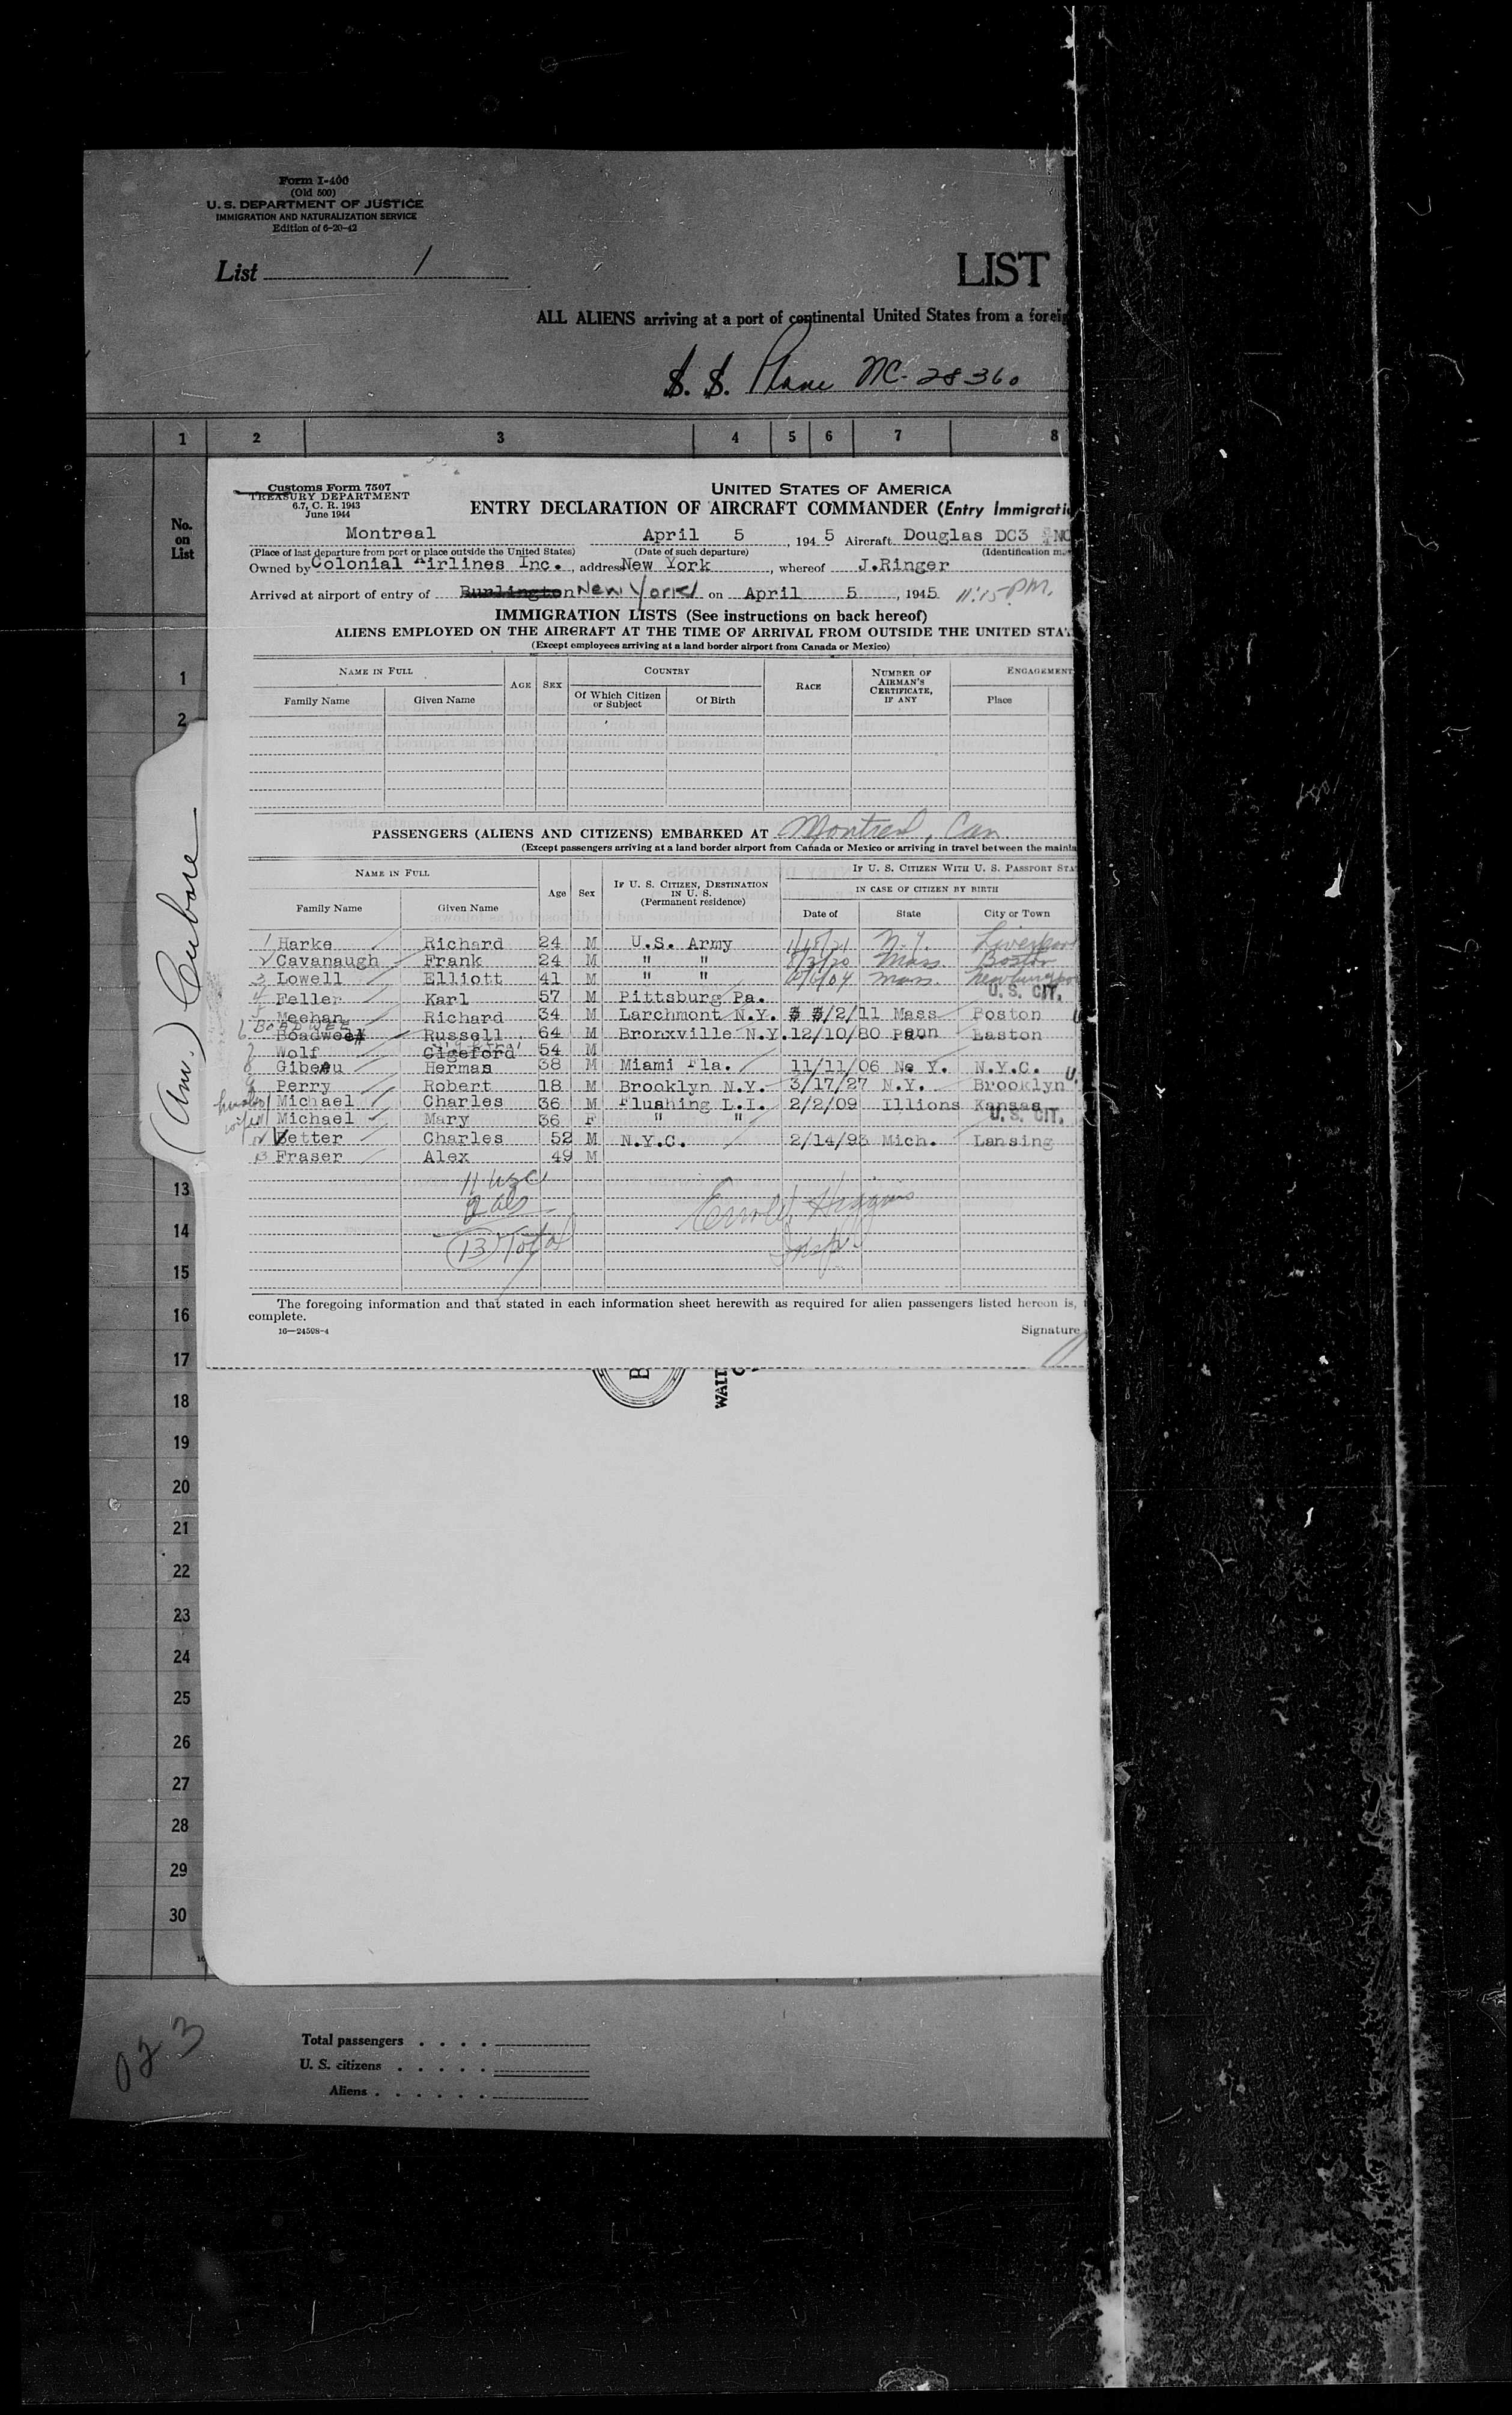 Form I-400
(Old 500)
U. S. DEPARTMENT OF JUSTICE
IMMIGRATION AND NATURALIZATION SERVICE
Edition of 6-20-42
List 1
LIST
ALL ALIENS arriving at a port of continental United States from a foreig
S. S. Plane NC-28360
1 2 3 4 5 6 7 8
No. on List
Customs Form 7507
TREASURY DEPARTMENT
6.7, C. R. 1943
June 1944
UNITED STATES OF AMERICA
ENTRY DECLARATION OF AIRCRAFT COMMANDER (Entry Immigratio
Montreal April 5, 1945 Aircraft Douglas DC3 NC
(Place of last departure from port or place outside the United States) (Date of such departure) (Identification
Owned by Colonial Airlines Inc., address New York, whereof J.Ringer
Arrived at airport of entry of Burlington New York on April 5, 1945 11:15 PM.
IMMIGRATION LISTS (See instructions on back hereof)
ALIENS EMPLOYED ON THE AIRCRAFT AT THE TIME OF ARRIVAL FROM OUTSIDE THE UNITED STA
(Except employees arriving at a land border airport from Canada or Mexico)
NAME IN FULL AGE SEX COUNTRY RACE NUMBER OF AIRMAN'S CERTIFICATE, IF ANY ENGAGEMENT
Family Name Given Name Of Which Citizen or Subject Of Birth Place
1
2
PASSENGERS (ALIENS AND CITIZENS) EMBARKED AT Montreal, Can
(Except passengers arriving at a land border airport from Canada or Mexico or arriving in travel between the mainla
NAME IN FULL Age Sex IF U. S. CITIZEN, DESTINATION IN U. S. (Permanent residence) IF U. S. CITIZEN WITH U. S. PASSPORT STA
IN CASE OF CITIZEN BY BIRTH
Family Name Given Name Date of State City or Town
1 Harke Richard 24 M U.S. Army 1/18/21 N.Y. Liverpool
2 Cavanaugh Frank 24 M " " 8/3/20 Mass. Boston
3 Lowell Elliott 41 M " " Mass.
4 Feller Karl 57 M Pittsburg Pa. U. S. CIT.
5 Meehan Richard 34 M Larchmont N.Y. /2/11 Mass Boston
BOADWEE
6 Boadwee Russell 64 M Bronxville N.Y. 12/10/80 Penn Easton
7 Wolf Cigeford 54 M
8 Gibeau Herman 38 M Miami Fla. 11/11/06 Ne Y. N.Y.C.
9 Perry Robert 18 M Brooklyn N.Y. 3/17/27 N.Y. Brooklyn
husb 10 Michael Charles 36 M Flushing L.I. 2/2/09 Illions Kansas
wife 11 Michael Mary 36 F " " U. S. CIT.
12 Zetter Charles 52 M N.Y.C. 2/14/93 Mich. Lansing
13 Fraser Alex 49 M
11 usc
2 als
(13) Total
Higgins
Insp.
The foregoing information and that stated in each information sheet herewith as required for alien passengers listed hereon is,
complete.
16—24598-4
Signature
(Am.)
13
14
15
16
17
18
19
20
21
22
23
24
25
26
27
28
29
30
B
WALT
Total passengers
U. S. citizens
Aliens
023